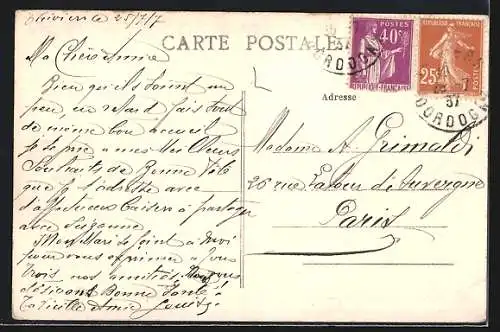 25/7/7
CARTE POSTALE
40c
POSTES
RÉPUBLIQUE FRANÇAISE
REPUBLIQUE FRANÇAISE
25c
POSTES
37
DORDOGNE
37
DORDOGNE
Adresse
Ma Chère Amie
Rien qu'ils soient un
peu en retard fais tout
de même bon accueil
je te prie a mes Meilleurs
Souhaits de Bonne Fête
que je t'adresse avec
d'affectueux Baisers à partager
avec Suzanne
Mon Mari se joint à moi
pour vous exprimer a tous
trois nos amitiés
désirons Bonne Santé !
Ta vieille Amie Louise
Madame A. Grimaldi
26 rue Latour d'Auvergne
Paris